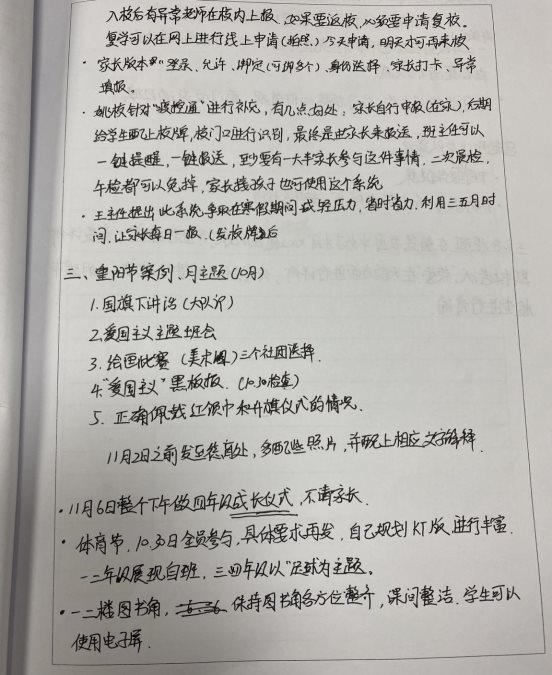 入校后有异常老师在校内上报 如果要返校，必须要申请复核。
复学可以在网上进行线上申请（拍照）今天申请，明天才可再来校
· 家长版本：登录、允许、绑定（可绑多个）、身份选择、家长打卡、异常
填报。
· 姚校针对“疫控通”进行补充，有几点好处：家长自行申报（在家），后期
给学生配上校牌，校门口进行识别，最终是由家长来报送，班主任可以
一键提醒，一键报送，至少要有一大半家长参与这件事情，二次晨检，
午检都可以免掉，家长接孩子也可使用这个系统
· 王主任提出此系统争取在寒假期间减轻压力，省时省力，利用三五月时
间，让家长每日一报.（发校牌）后
三、重阳节案例、月主题（10月）
1.国旗下讲话（大队部）
2.爱国主义主题班会
3.绘画比赛（美术组）三个社团选择.
4.“爱国主义”黑板报.（10.30检查）
5.正确佩戴红领巾和升旗仪式的情况.
11月2日之前发至德育处，多配些照片，并配上相应文字解释.
· 11月6日整个下午做四年级成长仪式，不请家长.
· 体育节，10.30日全员参与，具体要求再发，自己规划KT版，进行丰富.
一二年级展现自班，三四年级以“足球为主题。
· 一二楼图书角，保持图书角各方位整齐，课间整洁.学生可以
使用电子屏.